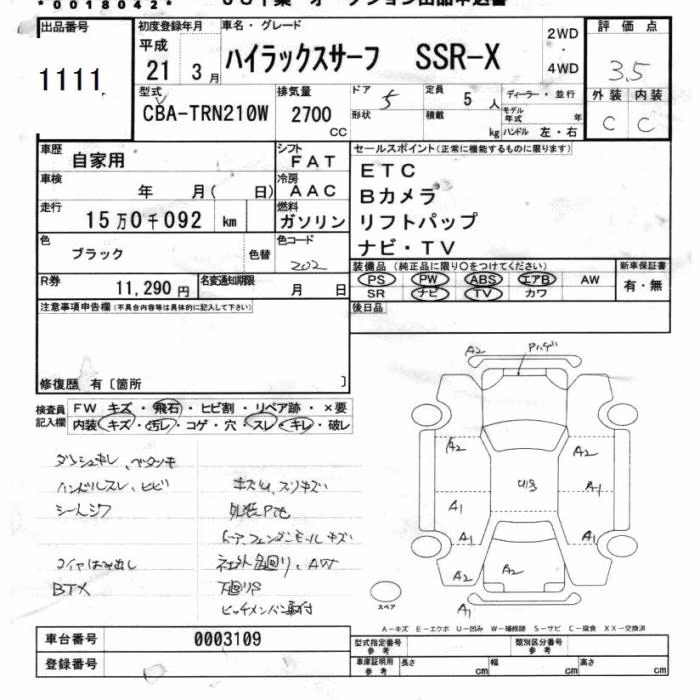 *0018042*
出品番号
1111
初度登録年月
平成
21 3月
車名・グレード
ハイラックスサーフ SSR-X
2WD
・
4WD
評価点
3.5
外装 内装
C C
型式
CBA-TRN210W
排気量
2700
CC
ドア 5
形状
定員 5 人
積載 kg
ディーラー・並行
モデル年式 年
ハンドル 左・右
車歴
自家用
シフト
FAT
車検
年 月( 日)
冷房
AAC
走行
15万0千092 km
燃料
ガソリン
色
ブラック
色替
色コード
202
R券
11,290円
名変通知期限
月 日
セールスポイント(正常に機能するものに限ります)
ETC
Bカメラ
リフトパップ
ナビ・TV
装備品 (純正品に限り○をつけてください)
PS PW ABS エアB AW
SR ナビ TV カワ
新車保証書
有・無
後日品
注意事項申告欄(不具合内容等は具体的に記入して下さい)
修復歴 有〔箇所 〕
検査員
記入欄
FW キズ・飛石・ヒビ割・リペア跡・×要
内装 キズ・汚レ・コゲ・穴・スレ・キレ・破レ
ハンドルスレ、ヒビ
シートシワ
BTX
キズ
下廻りS
A2
A2 A2
A1 A1
U13
A1 A1
A2 A2 A2
A1
スペア
A-キズ E-エクボ U-凹み W-補修跡 S-サビ C-腐食 XX-交換済
車台番号
0003109
登録番号
型式指定番号
参考
類別区分番号
参考
車庫証明用
参考
長さ cm
幅 cm
高さ cm